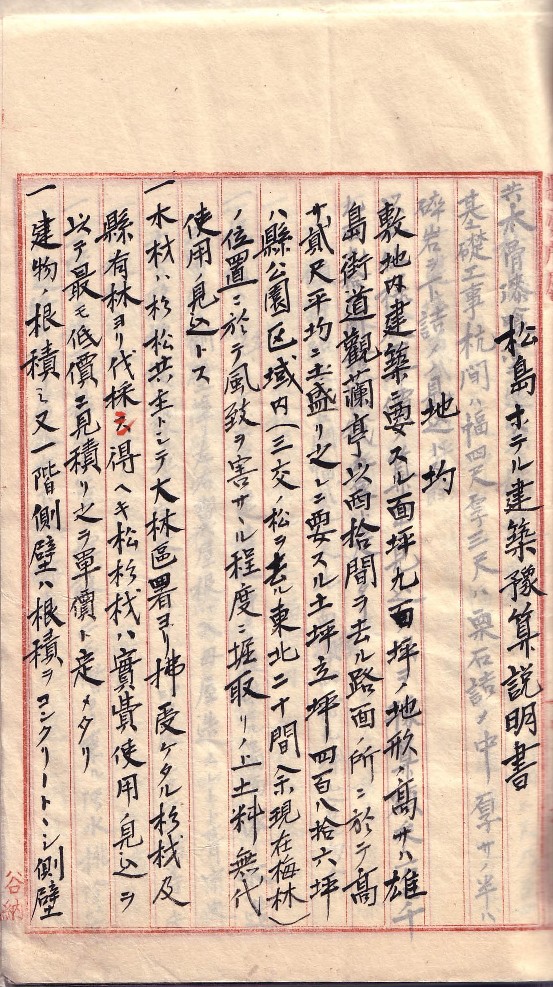 松島ホテル建築豫算説明書
地坪
敷地内建築ニ要スル面坪九百坪ヲ地形ノ高サハ雄
島街道觀瀾亭以西拾間ヲ去ル路面所ニ於テ高
サ貳尺平均ニ土盛リ之レニ要スル土坪立坪四百八拾六坪
ハ縣公園区域内(三交ノ松ヲ去ル東北二十間余現在梅林)
ノ位置ニ於テ風致ヲ害サヽル程度ニ堀取リノ上土料無代
使用ノ見込トス
一木材ハ杉松共主トシテ大林區署ヨリ拂受ケタル杉材及
縣有林ヨリ伐採シ得ヘキ松杉材ハ實費使用ノ見込ヲ
以テ最モ低價ニ見積リ之ヲ單價ト定メタリ
一建物ノ根積ミ又一階側壁ハ根積ヲコンクリートトシ側壁